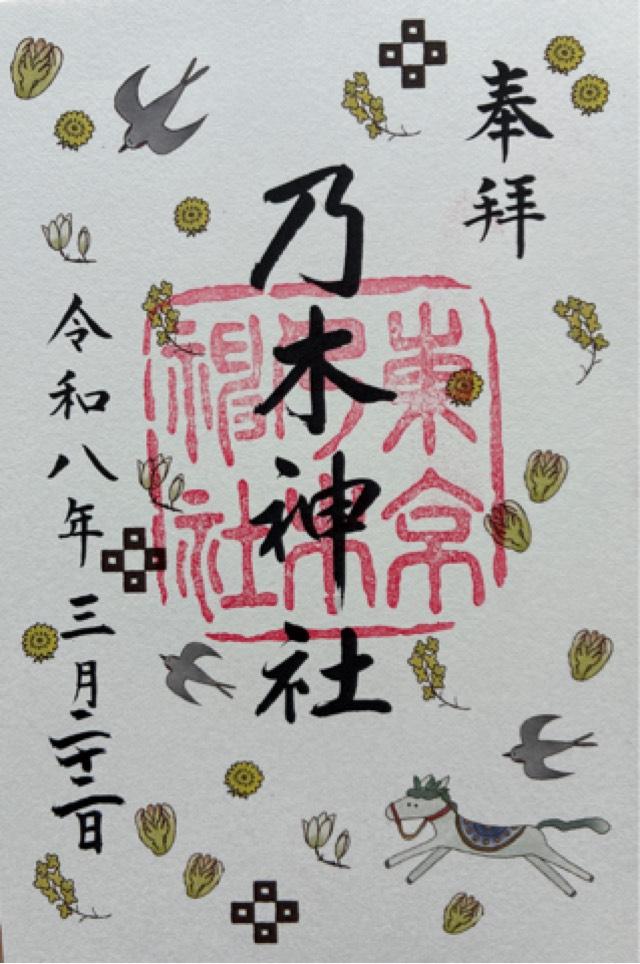 奉拝
乃木神社
東京
乃木
神社
令和八年三月二十二日